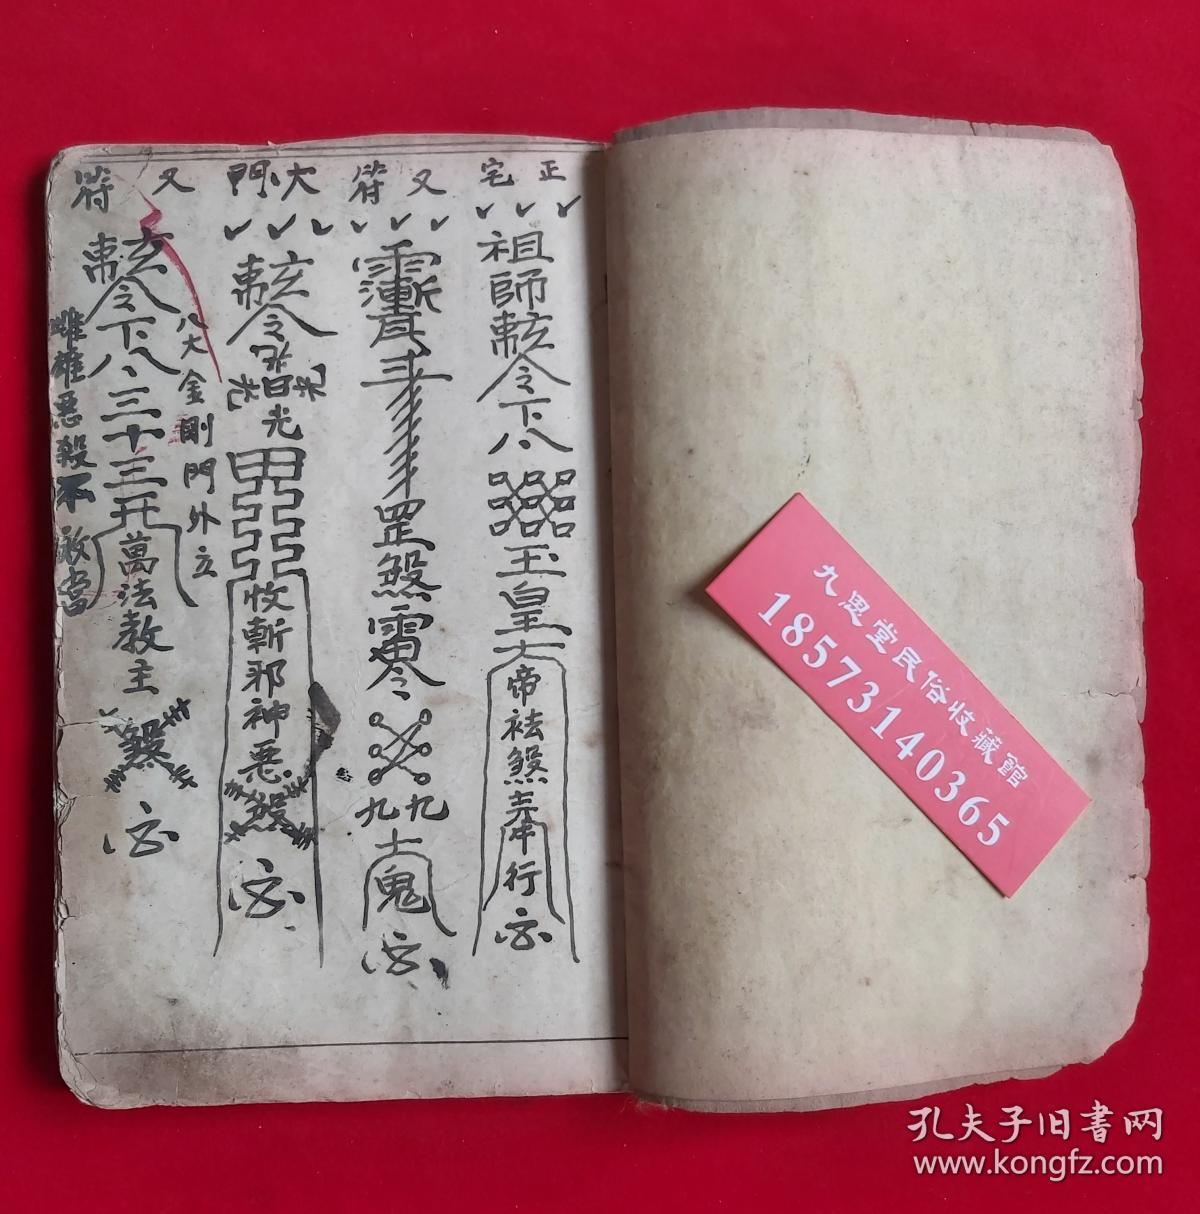 正宅
祖師敕令下
玉皇大帝祛煞奉行
又符
罡煞
九九
鬼
大門
敕令
光
收斬邪神惡煞
八大金剛門外立
又符
敕令下
三十三天
萬法教主
煞
雌雄惡殺不敢當
九思堂民俗收藏館
18573140365
孔夫子旧書网
www.kongfz.com